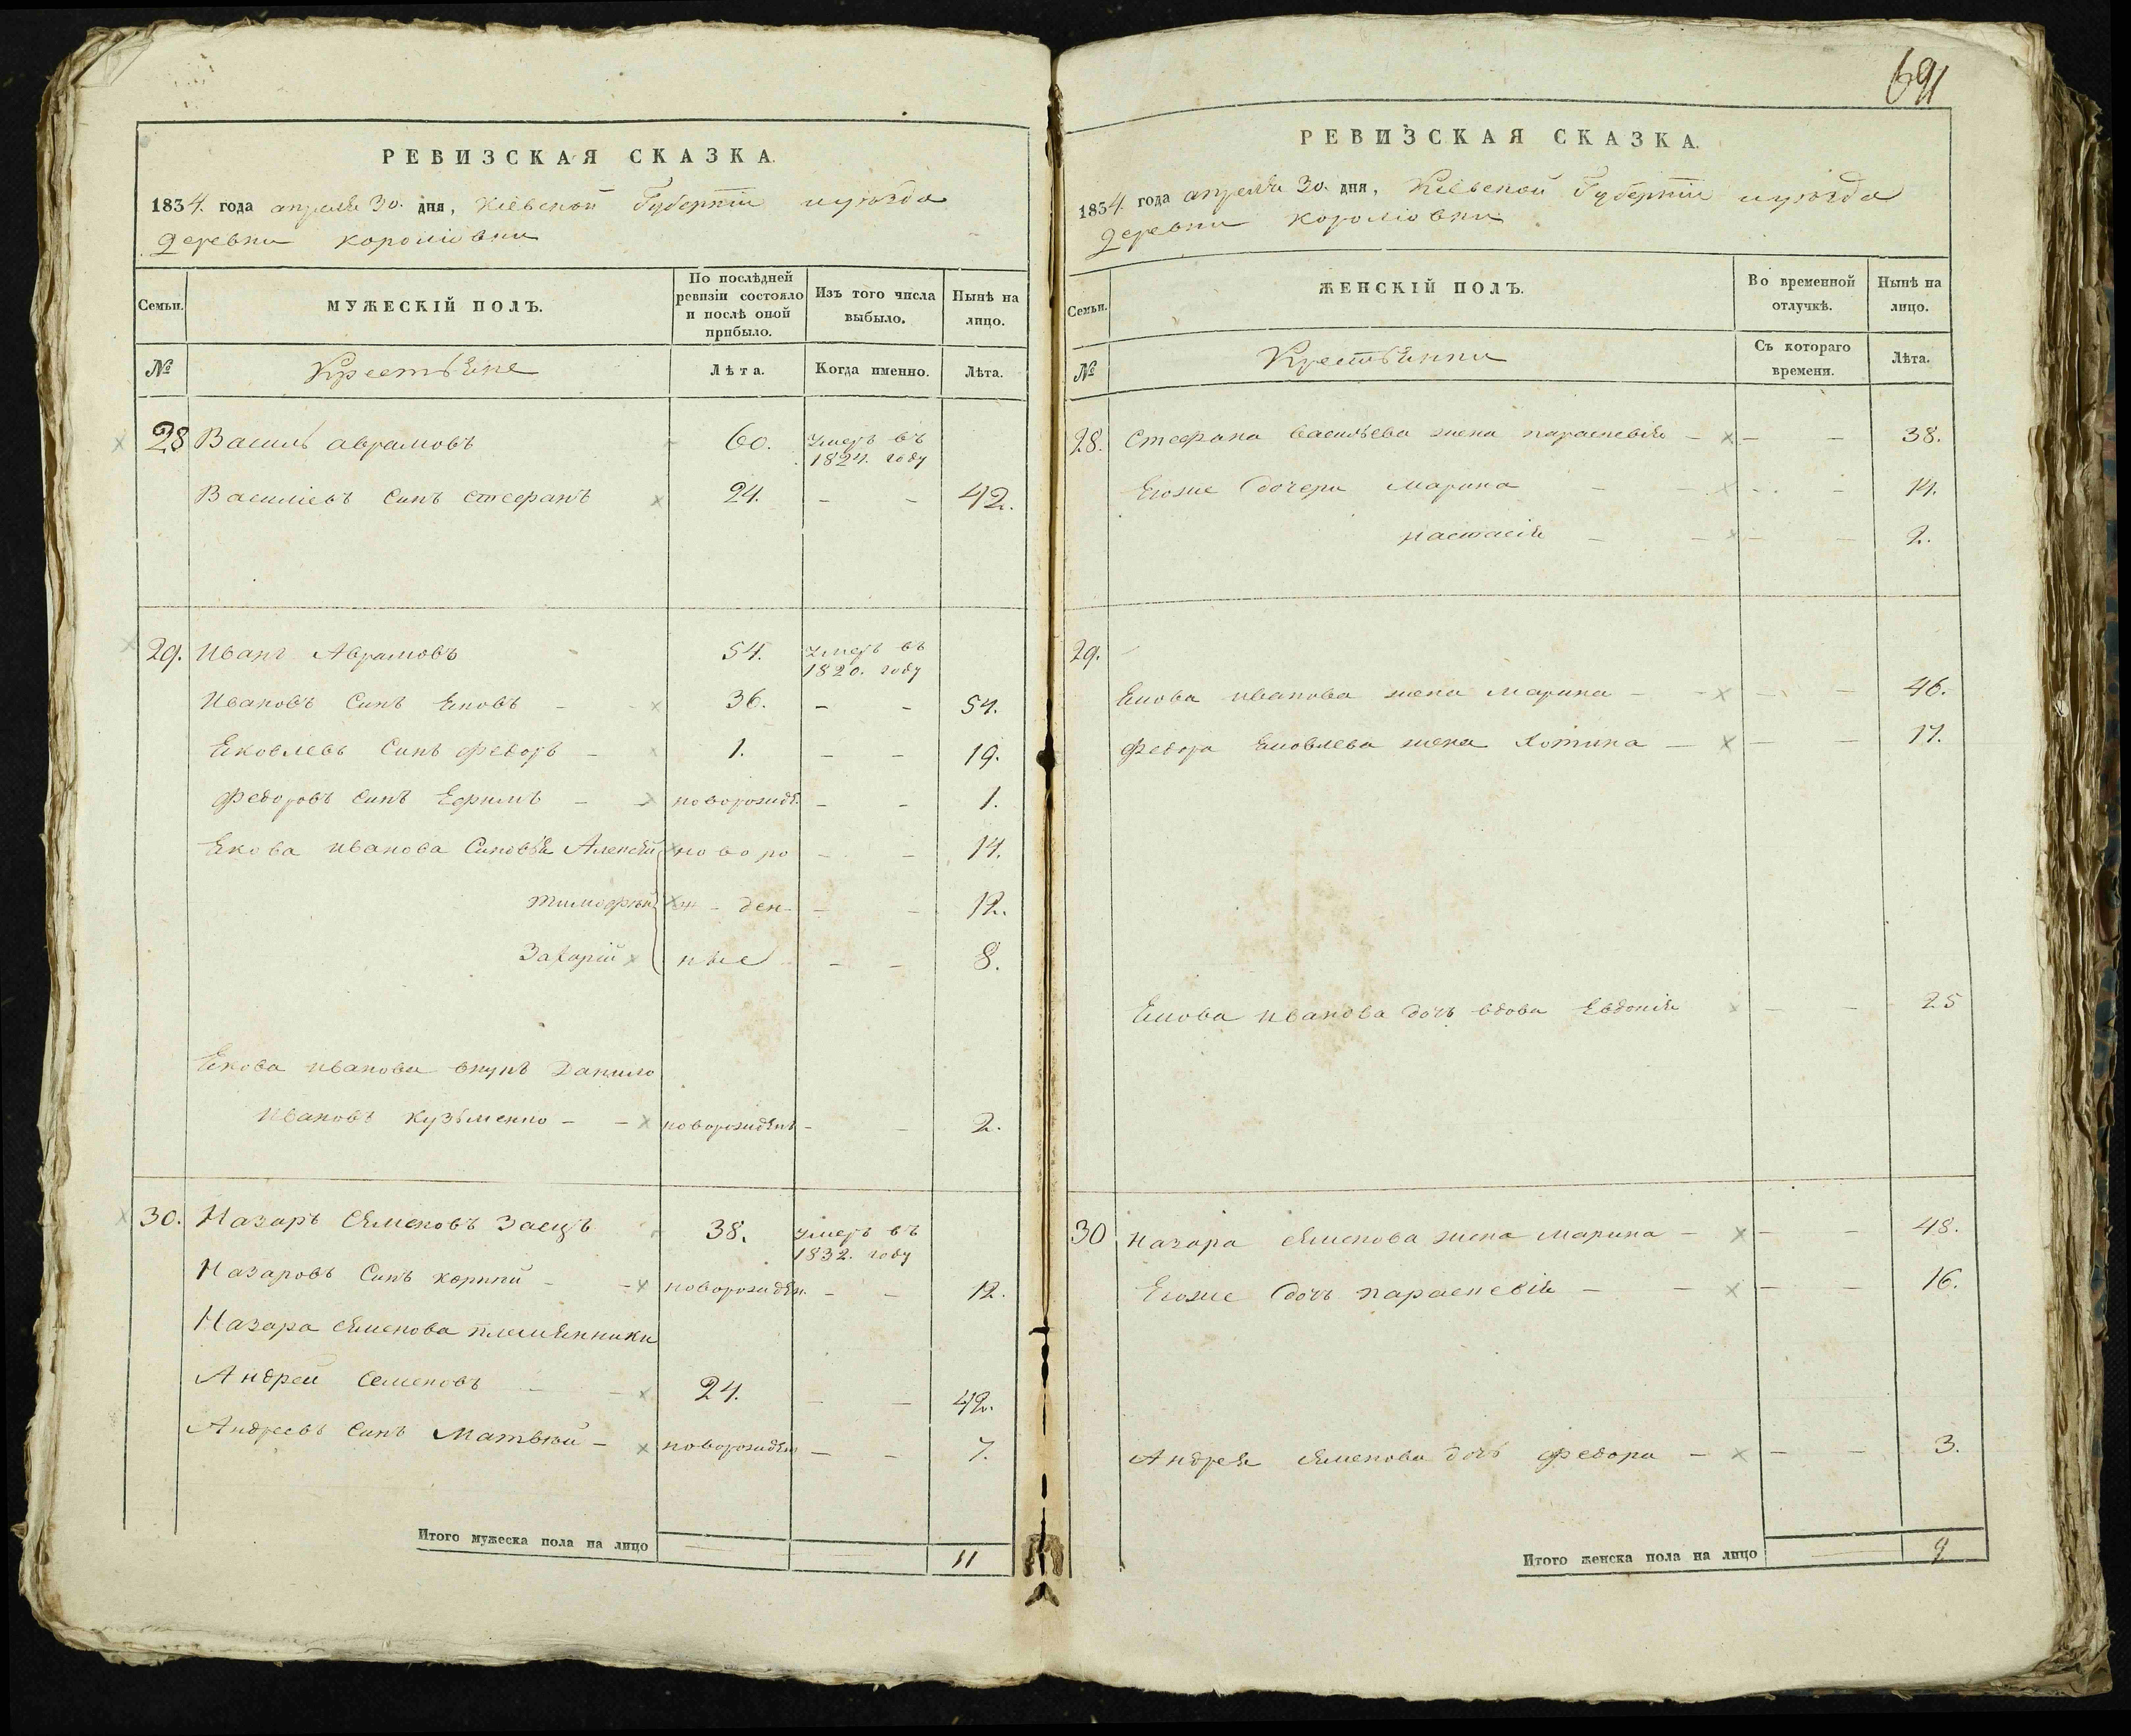 691
РЕВИЗСКАЯ СКАЗКА.
1834. года апреля 30. дня, Кіевской Губерніи и уѣзда
деревни короліовки
Семьи.
МУЖЕСКІЙ ПОЛЪ.
По послѣдней ревизіи состояло и послѣ оной прибыло.
Изъ того числа выбыло.
Нынѣ на лицо.
№
Крестьяне
Лѣта.
Когда именно.
Лѣта.
28 Василь аврамовъ 60. умеръ въ 1824. году
Василіевъ Синъ стефанъ 24. - - 42.
29. Иванъ Аврамовъ 54. умеръ въ 1820. году
Ивановъ Синъ Яковъ - - 36. - - 54.
Яковлевъ Синъ Федоръ - 1. - - 19.
Федоровъ Синъ Ефимъ - - новорожд - - 1.
Якова иванова Синовья Алексѣй ново ро - - 14.
тимофѣй ж - ден - - 12.
Захарій ные - - 8.
Якова иванова внукъ Данило
Ивановъ Кузьменко - - новорожденъ - - 2.
30. Назаръ Семеновъ Заецъ 38. умеръ въ 1832. году
Назаровъ Синъ корній - - новорожден. - - 12.
Назара Семенова племянники
Андрей Семеновъ - - 24. - - 42.
Андреевъ Синъ Матвѣй - новорожден - - 7.
Итого мужеска пола на лицо 11
РЕВИЗСКАЯ СКАЗКА.
1834. года апреля 30. дня, Кіевской Губерніи и уѣзда
деревни короліовки
Семьи.
ЖЕНСКІЙ ПОЛЪ.
Во временной отлучкѣ.
Нынѣ на лицо.
№
Крестьянки
Съ котораго времени.
Лѣта.
28. Стефана васильева жена параскевія - - - 38.
Егоже дочери марина - - - - 14.
настасія - - - - 2.
29.
Якова иванова жена марина - - - - 46.
Федора Яковлева жена Хотина - - - 17.
Якова иванова дочь вдова Евдокія - - 25
30 Назара Семенова жена марина - - - 48.
Егоже дочь параскевія - - - - 16.
Андрея Семенова дочь Федора - - - 3.
Итого женска пола на лицо 9